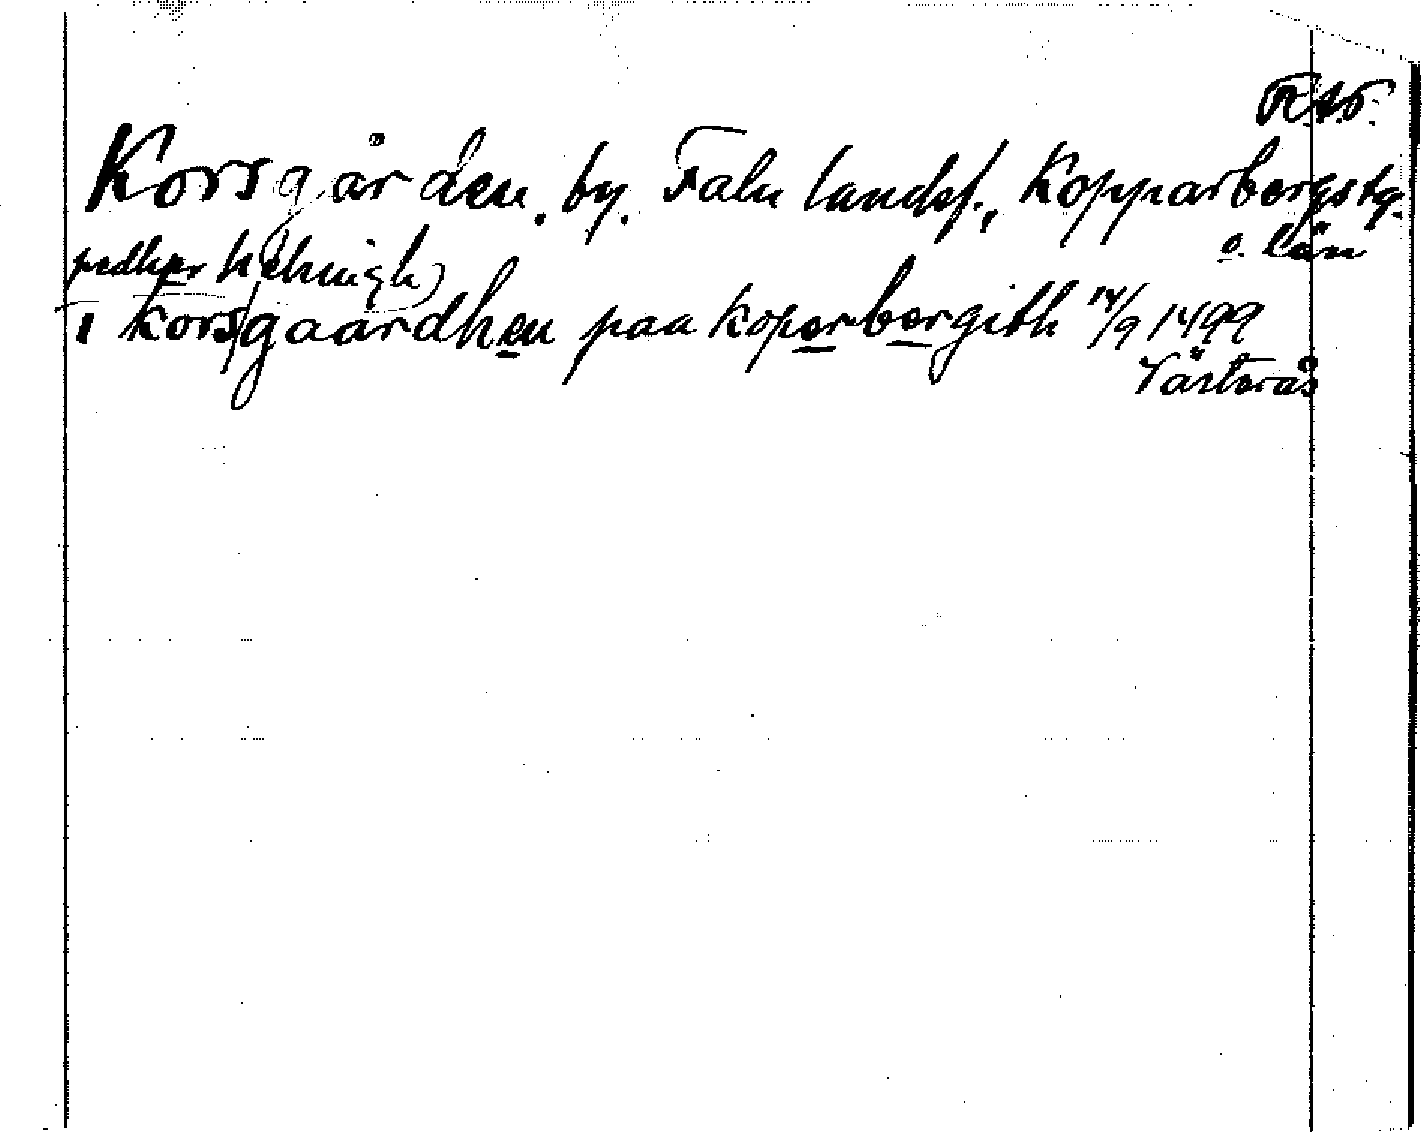 R.A.P.
Korsgården. by. Falu landsf., Kopparbergs tg.
o. län
pedher helmigh)
i korsgaardhen paa koperbergith 14/9 1499
Västerås